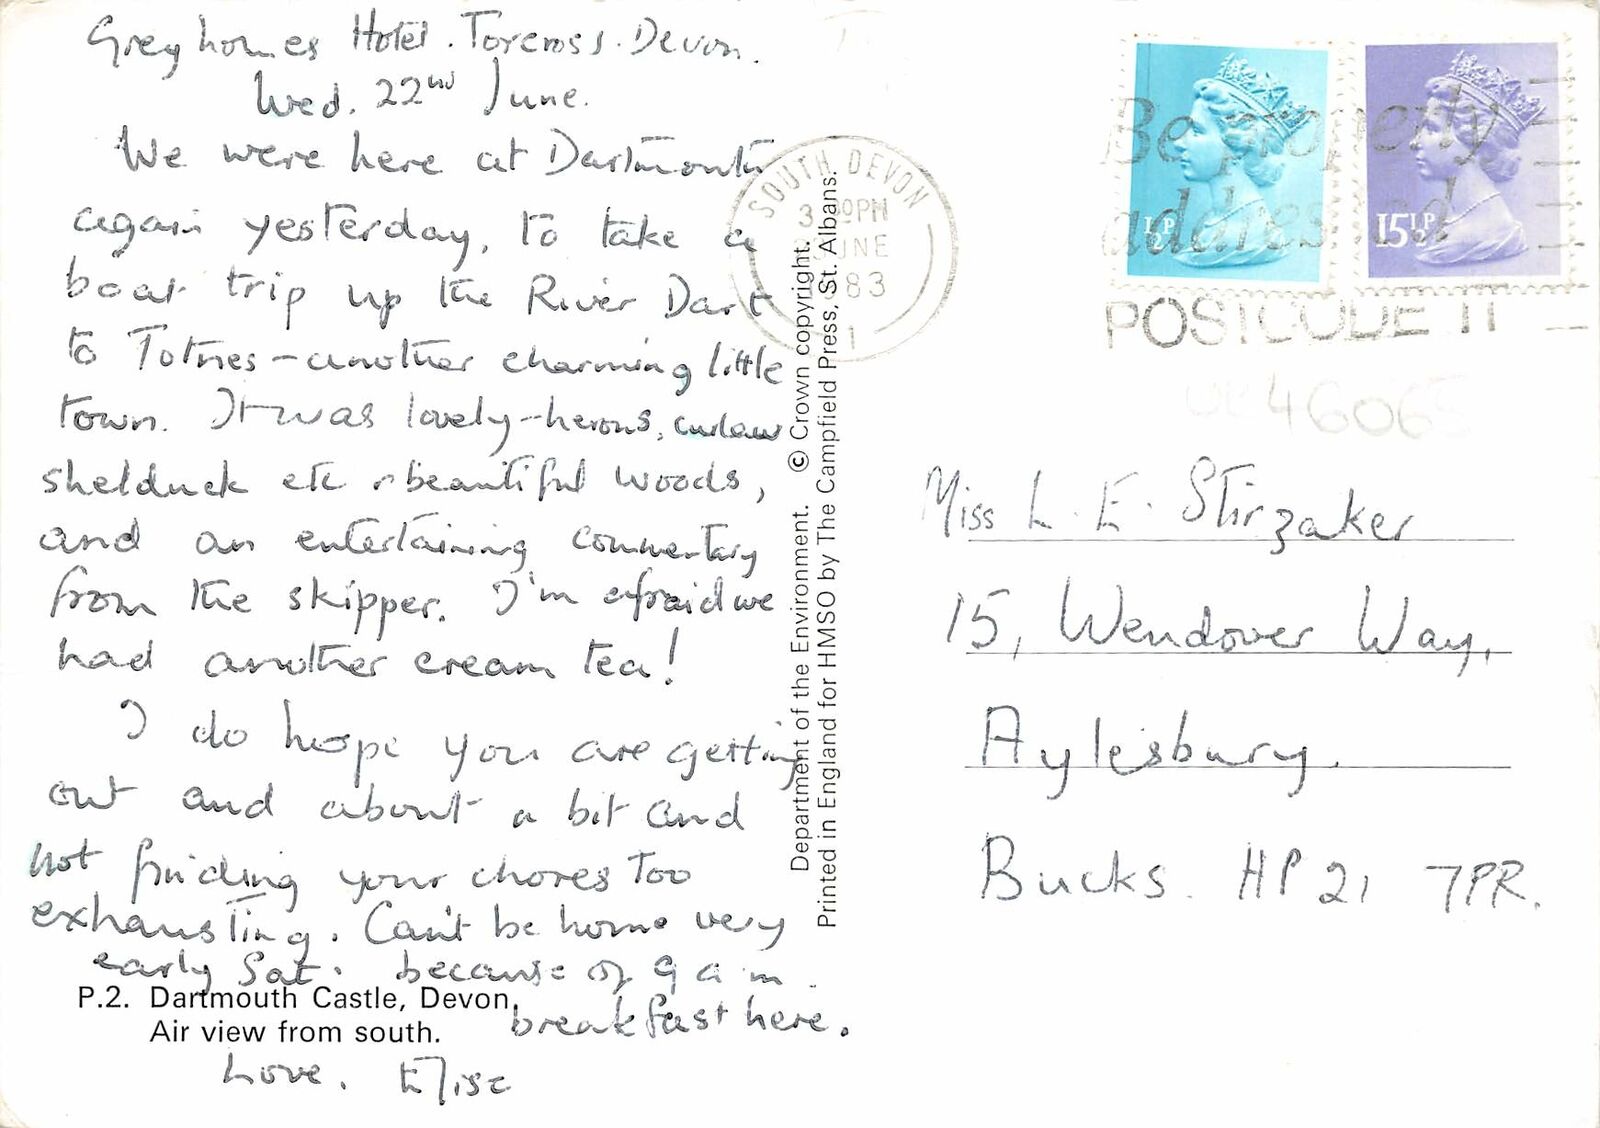 Greyhomes Hotel. Torcross. Devon.
Wed. 22nd June.
We were here at Dartmouth
again yesterday, to take a
boat trip up the River Dart
to Totnes – another charming little
town. It was lovely – herons, curlew
shelduck etc – beautiful woods,
and an entertaining commentary
from the skipper. I'm afraid we
had another cream tea!
I do hope you are getting
out and about a bit and
not finding your chores too
exhausting. Can't be home very
early Sat. because of 9 a m
breakfast here.
Love. Elise
P.2. Dartmouth Castle, Devon.
Air view from south.
Department of the Environment. © Crown copyright.
Printed in England for HMSO by The Campfield Press, St. Albans.
SOUTH DEVON
PM
JUNE
83
1
½P
15½P
Be properly
addressed
POSTCODE IT
46065
Miss L. E. Stirzaker
15, Wendover Way,
Aylesbury.
Bucks. HP21 7PR.